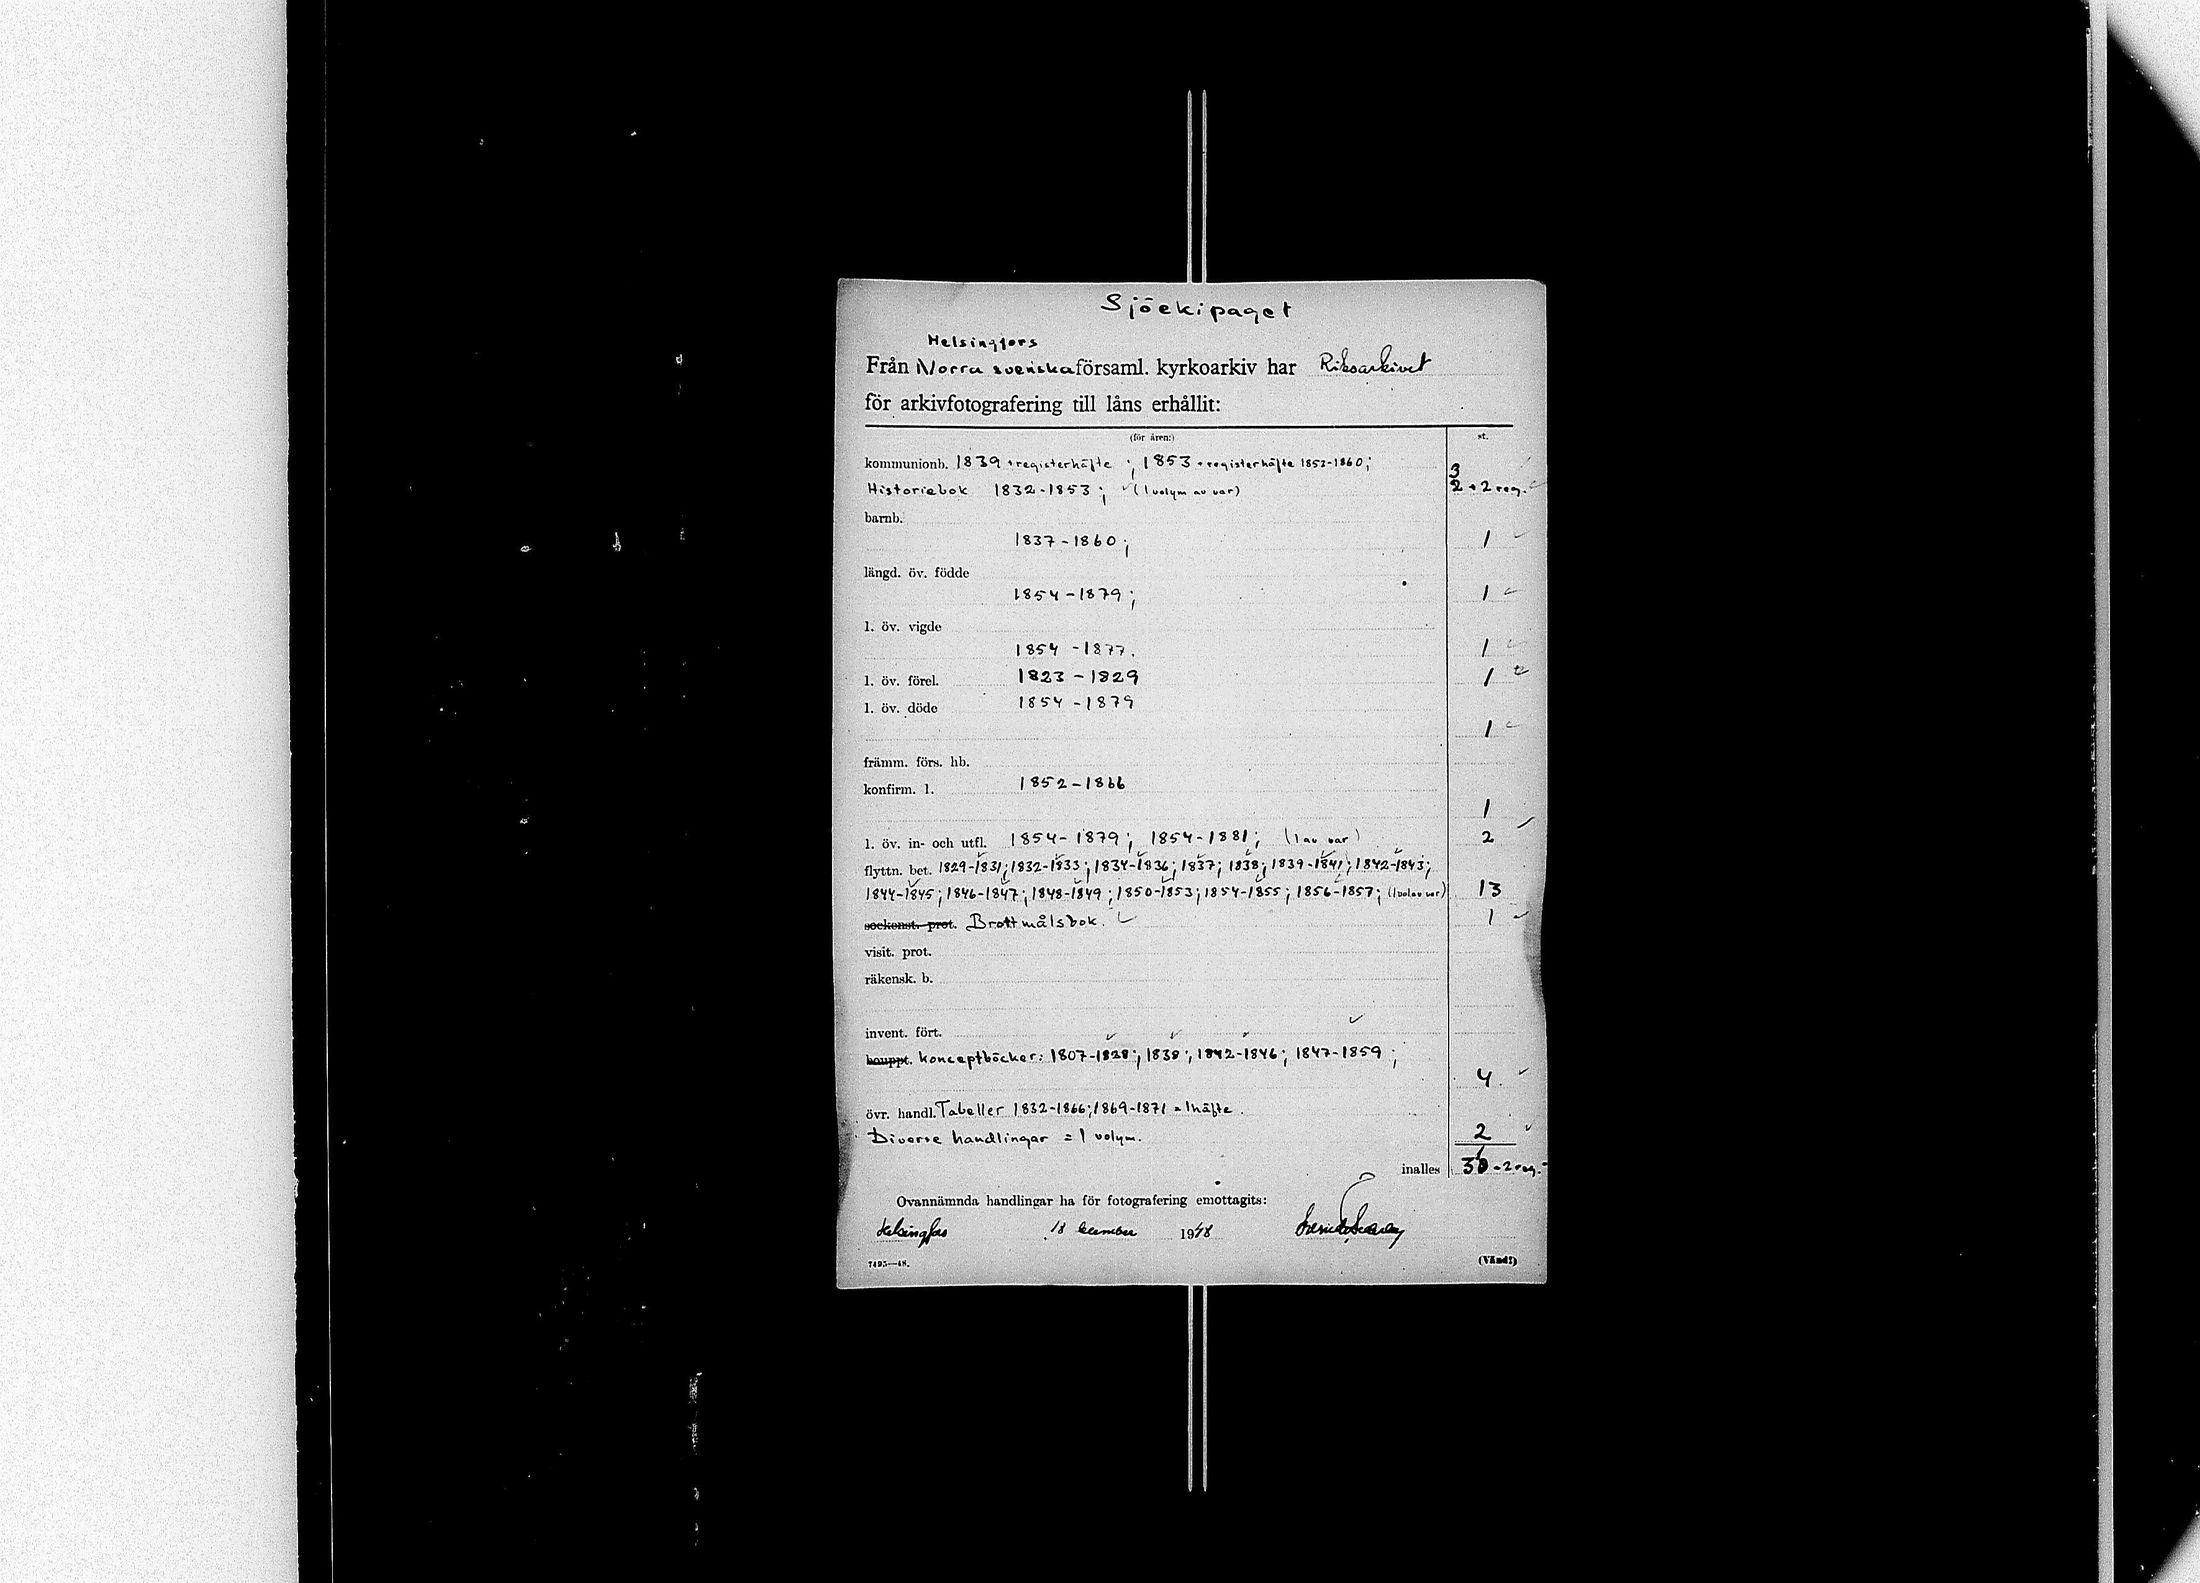 Sjöekipaget
Helsingfors
Från Norra svenska församl. kyrkoarkiv har Riksarkivet
för arkivfotografering till låns erhållit:
(för åren:) st.
kommunionb. 1839 + registerhäfte ; 1853 + registerhäfte 1853-1860; 3
Historiebok 1832-1853; (1 volym av var) 2 + 2 reg.
barnb.
1837-1860; 1
längd. öv. födde
1854-1879; 1
l. öv. vigde
1854-1877. 1
l. öv. förel. 1823-1829 1
l. öv. döde 1854-1879
1
främm. förs. hb.
konfirm. l. 1852-1866
1
l. öv. in- och utfl. 1854-1879; 1854-1881; (1 av var) 2
flyttn. bet. 1829-1831; 1832-1833; 1834-1836; 1837; 1838; 1839-1841; 1842-1843;
1844-1845; 1846-1847; 1848-1849; 1850-1853; 1854-1855; 1856-1857; (1 vol av var) 13
sockenst. prot. Brottmålsbok. 1
visit. prot.
räkensk. b.
invent. fört.
bouppt. konceptböcker: 1807-1828; 1838; 1842-1846; 1847-1859;
4.
övr. handl. Tabeller 1832-1866; 1869-1871 = 1 häfte.
Diverse handlingar = 1 volym. 2
inalles + 2 reg.
Ovannämnda handlingar ha för fotografering emottagits:
Helsingfors 18 december 1948
7495—48. (Vänd!)